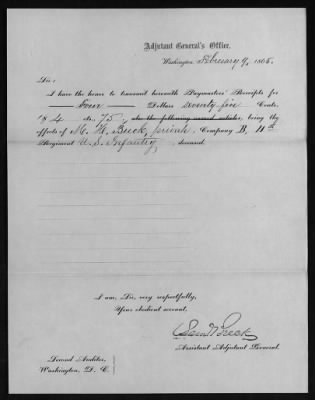 Adjutant General's Office,
Washington, February 9, 1865.
Sir:
I have the honor to transmit herewith Paymasters' Receipts for
Four Dollars seventy five Cents,
$ 4 cts. 75, or the following named articles, being the
effects of M. H. Buck, private, Company B, 11th
Regiment U. S. Infantry, deceased.
I am, Sir, very respectfully,
Your obedient servant,
Sam Breck
Assistant Adjutant General.
Second Auditor,
Washington, D. C.